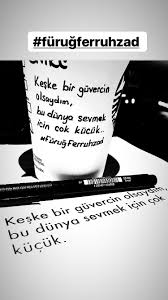 #füruğferruhzad
Keşke bir güvercin
olsaydım,
bu dünya sevmek
için çok küçük..
#füruğFerruhzad
Keşke bir güvercin olsaydım,
bu dünya sevmek için çok
küçük..